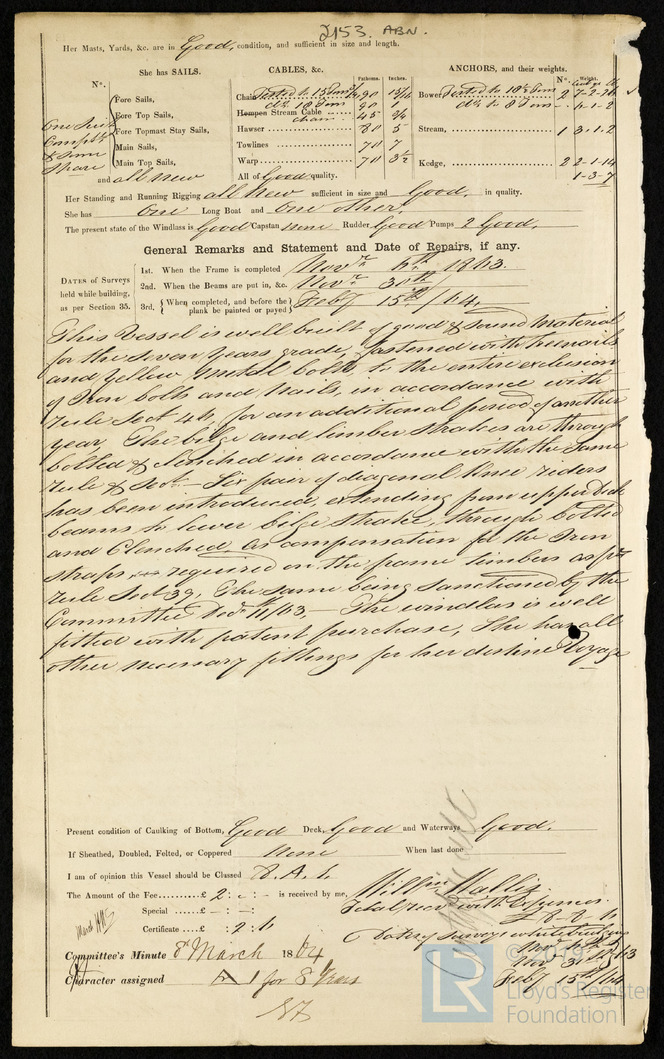 2153. ABN.
Her Masts, Yards, &c. are in Good, condition, and sufficient in size and length.
She has SAILS. CABLES, &c. ANCHORS, and their weights.
No. Fathoms. Inches. No. Weight.
Fore Sails, Chain Tested to 90 Bower Tested to 2 7-2-26
Fore Top Sails, do 18 Tons 90 1 do to 8 Tons 6-1-2
One Suit Fore Topmast Stay Sails, Hempen Stream Cable chain 45
Compte Main Sails, Hawser 80 5 Stream, 1 3-1-2
& Some Main Top Sails, Towlines 70 7
Spare Warp 70 3½ Kedge, 2 2-1-14
and all new All of Good quality. 1-3-7
Her Standing and Running Rigging all New sufficient in size and Good, in quality.
She has One Long Boat and One other
The present state of the Windlass is Good Capstan none Rudder Good Pumps 2 Good,
General Remarks and Statement and Date of Repairs, if any.
DATES of Surveys held while building, as per Section 35.
1st. When the Frame is completed Novr 6th 1863.
2nd. When the Beams are put in, &c. Novr 30th
3rd, When completed, and before the plank be painted or payed Feby 15th/64,
This Vessel is well built of good & sound material
for the Seven Years grade, fastened with treenails
and Yellow Metal bolts to the entire exclusion
of Iron bolts and Nails, in accordance with
rule Sect 44, for an additional period of another
year, The bilge and limber strakes are through
bolted & clenched in accordance with the same
rule & Sect. Six pair of diagonal Knee riders
has been introduced, extending from upper deck
beams to lower bilge strake, through bolted
and Clenched as compensation for the Iron
straps required on the frame timbers as per
rule Sect 39, The same being sanctioned by the
Committee Decr 11/63,— The windlass is well
fitted with patent purchase, She has all
other necessary fittings for her destined Voyage
Present condition of Caulking of Bottom, Good Deck, Good and Waterways Good.
If Sheathed, Doubled, Felted, or Coppered None When last done
I am of opinion this Vessel should be Classed 8. A. 1.
The Amount of the Fee £ 2 : - : - is received by me,
Special £ - : - :
Certificate £ : 2. 6
Total recd with Expenses
£ 8-8-6
Dates of Surveys while building
Novr 6th
Novr 30th /63
Feby 15th/64
Committee's Minute 8 March 1864
Character assigned A 1 for 8 Years
© 2019
LR
Lloyd's Register
Foundation